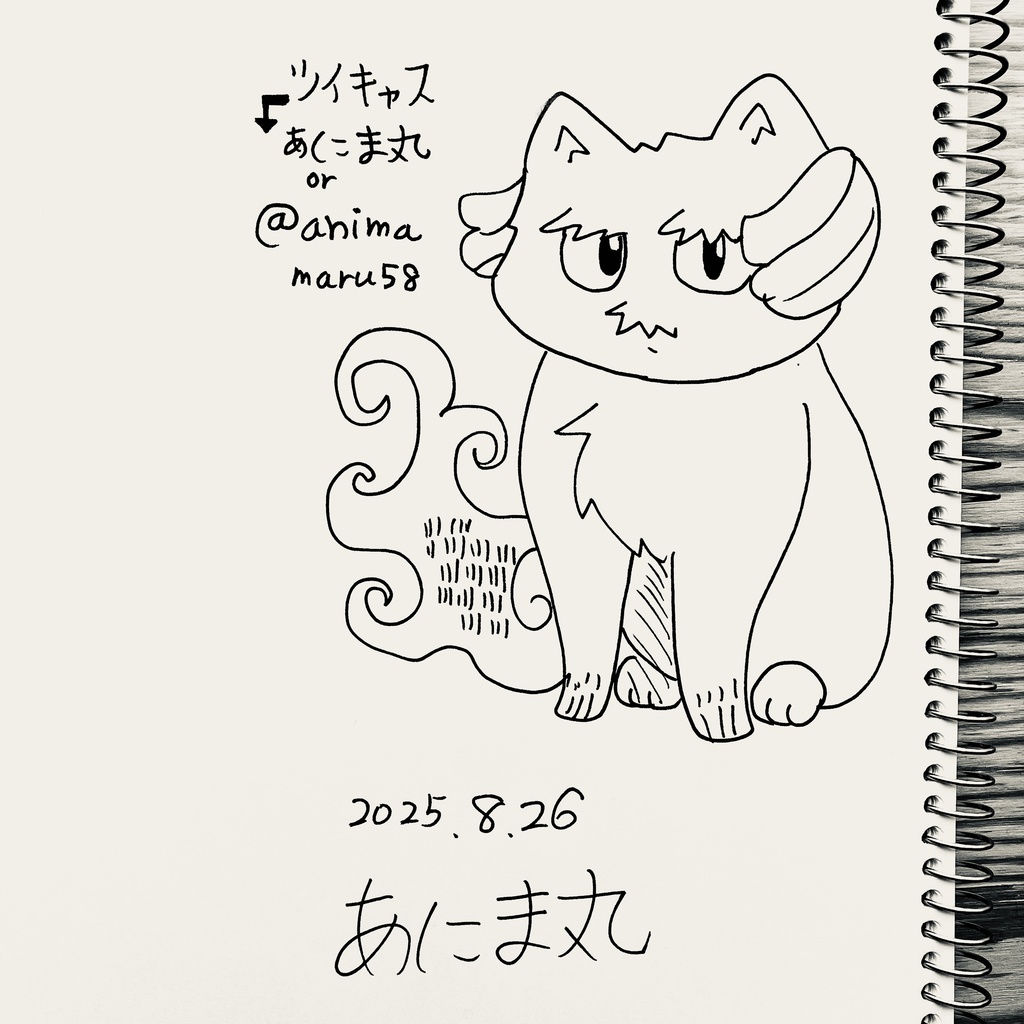 ツイキャス
あにま丸
or
@anima
maru58
2025.8.26
あにま丸